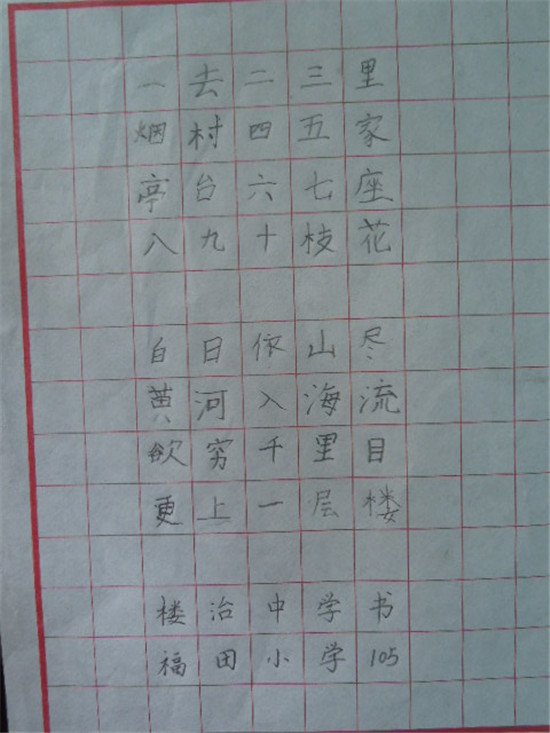 一去二三里
烟村四五家
亭台六七座
八九十枝花
白日依山尽
黄河入海流
欲穷千里目
更上一层楼
楼治中学书
福田小学105